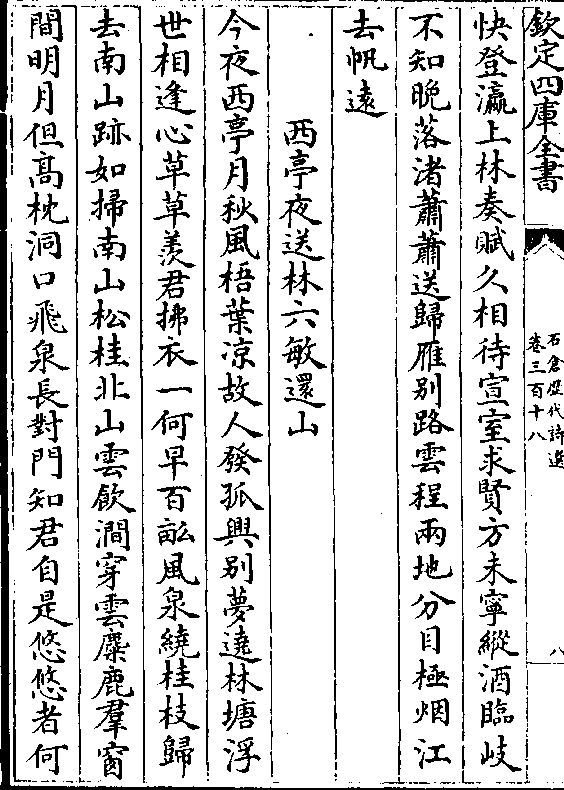 欽定四庫全書
石倉歷代詩選
卷三百十八
八
快登瀛上林奏賦久相待宣室求賢方未寧縱酒臨岐
不知晚落渚蕭蕭送歸雁别路雲程兩地分目極烟江
去帆遠
西亭夜送林六敏還山
今夜西亭月秋風梧葉凉故人發孤興别夢遶林塘浮
世相逢心草草羡君拂衣一何早百畝風泉繞桂枝歸
去南山跡如掃南山松桂北山雲飲澗穿雲麋鹿羣窗
間明月但髙枕洞口飛泉長對門知君自是悠悠者何